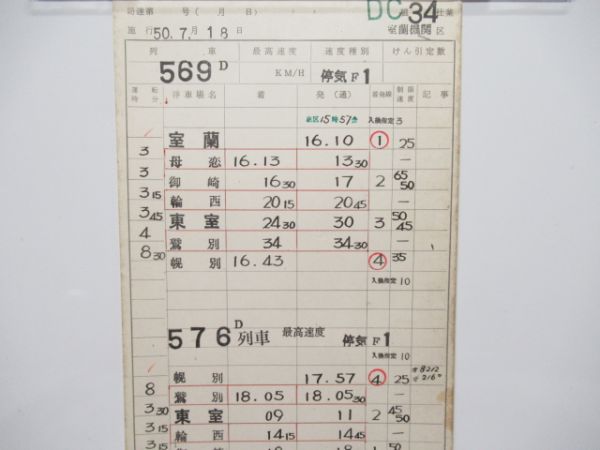 司達第 号( 月 日) DC 34 仕業
施行 50.7.月18日 室蘭機関区
列 車 最高速度 速度種別 けん引定数
569D KM/H 停気F1
運転時分 停車場名 着 発(通) 着発線 制限速度 記事
出区15時57分 入換指定 3
室蘭 16.10 ① 25
3 母恋 16.13 13 30 —
3 御崎 16 30 17 2 65 50
3 15 輪西 20 15 20 45 —
3 45 東室 24 30 30 3 50 45
4 鷲別 34 34 30 —
8 30 幌別 16.43 ④ 35
入換指定 10
576D列車 最高速度 停気F1
入換指定 10
幌別 17.57 ④ 25
8 鷲別 18.05 18.05 30 —
3 30 東室 09 11 2 45 50
3 15 輪西 14 15 14 45 —